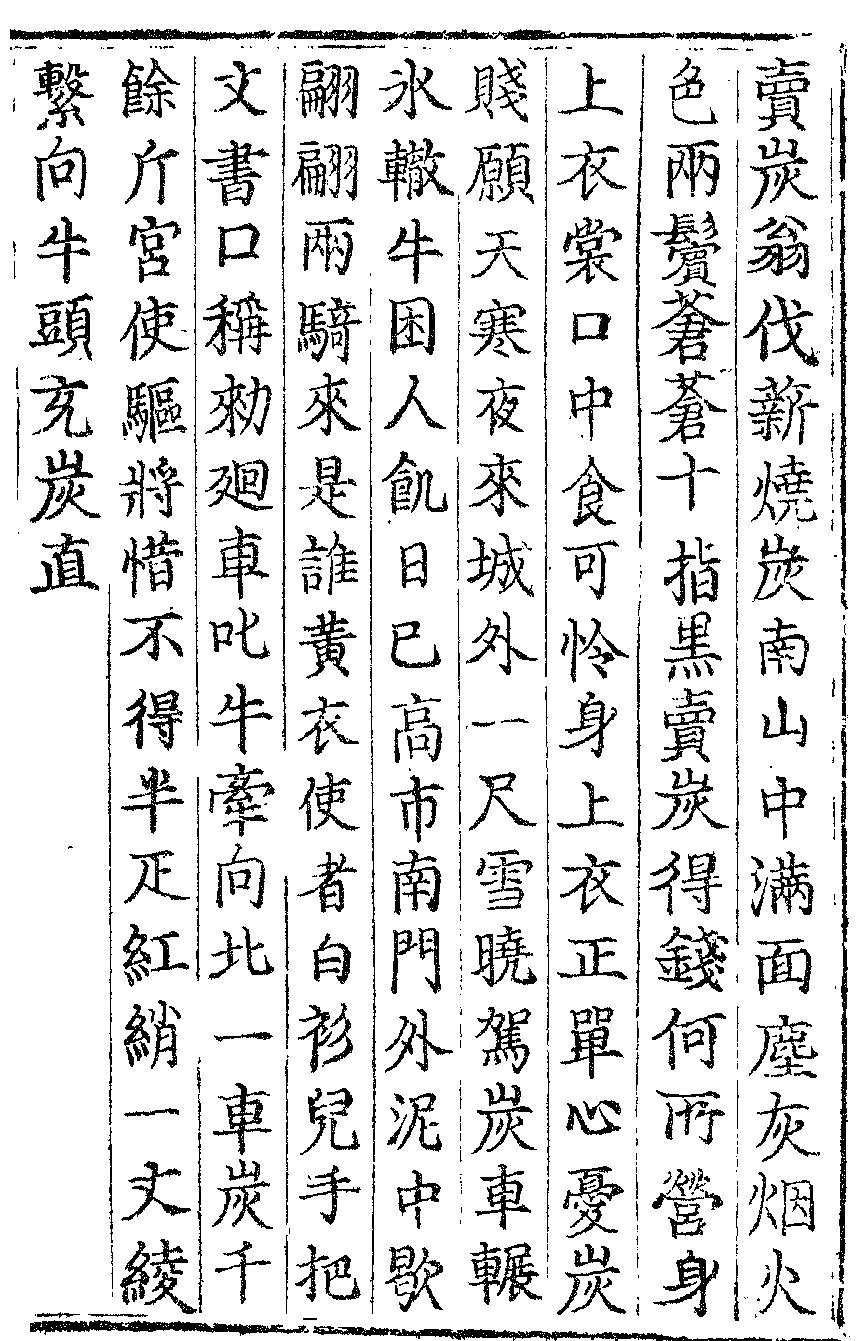 賣炭翁伐薪燒炭南山中滿面塵灰烟火
色兩鬢蒼蒼十指黑賣炭得錢何所營身
上衣裳口中食可怜身上衣正單心憂炭
賤願天寒夜來城外一尺雪曉駕炭車輾
氷轍牛困人飢日已高市南門外泥中歇
翩翩兩騎來是誰黄衣使者白衫兒手把
文書口稱勑廻車叱牛牽向北一車炭千
餘斤宮使驅將惜不得半疋紅綃一丈綾
繫向牛頭充炭直